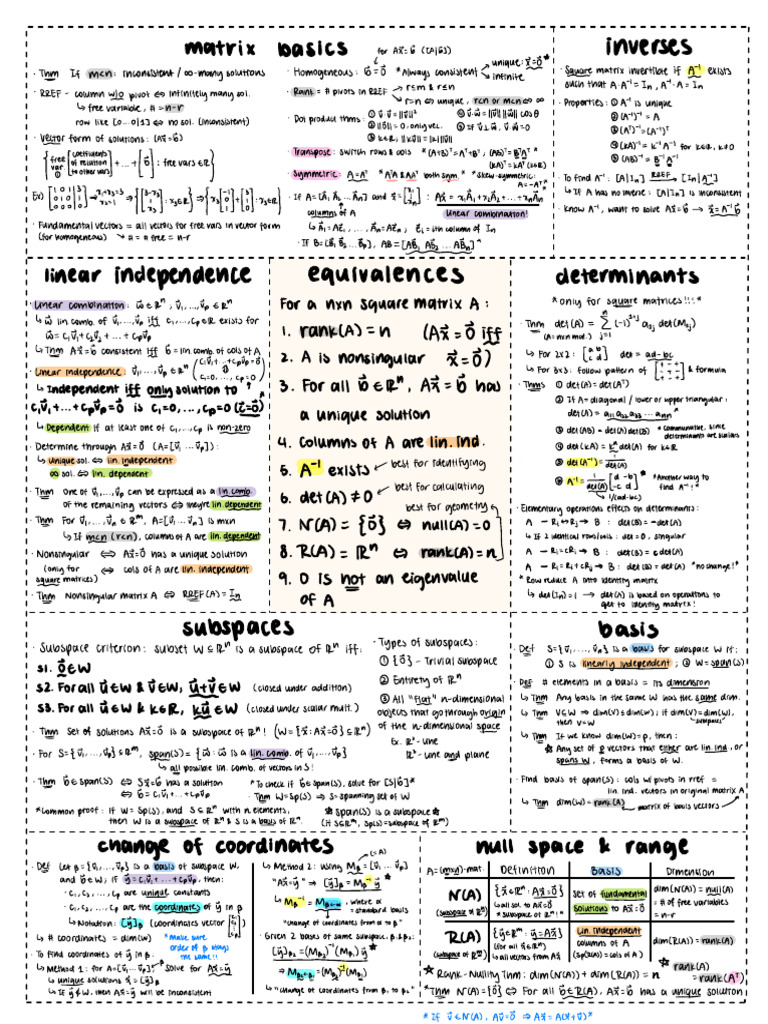 matrix basics
for Ax⃗=b⃗ ([A|b⃗])
· Thm If m<n: inconsistent / ∞-many solutions
· RREF - column w/o pivot ⇔ infinitely many sol.
↳ free variable, # = n-r
row like [0...0|1] ⇔ no sol. (inconsistent)
· Vector form of solutions: (Ax⃗=b⃗)
· Fundamental vectors = all vectors for free vars in vector form
(for homogeneous) ↳ # = # free = n-r
· Homogeneous: b⃗=0⃗ *Always consistent
unique: x⃗=0⃗
infinite
· Rank = # pivots in RREF
r≤m & r≤n
r=n ⇔ unique, r<n or m<n ⇔ ∞
· Dot product thms:
· Transpose: switch rows & cols *(A+B)ᵀ=Aᵀ+Bᵀ, (AB)ᵀ=BᵀAᵀ*
· Symmetric: A=Aᵀ *AᵀA & AAᵀ both sym.* *Skew-symmetric:
A=-Aᵀ*
columns of A
linear combination!
inverses
· Square matrix invertible if A⁻¹ exists
such that A·A⁻¹=Iₙ, A⁻¹·A=Iₙ
· Properties: ① A⁻¹ is unique
② (A⁻¹)⁻¹ = A
③ (Aᵀ)⁻¹=(A⁻¹)ᵀ
④ (kA)⁻¹=k⁻¹A⁻¹ for k∈R, k≠0
⑤ (AB)⁻¹=B⁻¹A⁻¹
· To find A⁻¹: [A|Iₙ] RREF→ [Iₙ|A⁻¹]
↳ If A has no inverse: [A|Iₙ] is inconsistent
· Know A⁻¹, want to solve Ax⃗=b⃗ → x⃗=A⁻¹b⃗
linear independence
· Linear combination: w⃗∈Rⁿ, v⃗₁,...,v⃗ₚ∈Rⁿ
↳ w⃗ lin. comb. of v⃗₁,...,v⃗ₚ iff c₁,...,cₚ∈R exists for
w⃗=c₁v⃗₁+c₂v⃗₂+...+cₚv⃗ₚ
↳ Thm Ax⃗=b⃗ consistent iff b⃗=lin. comb. of cols of A
· Linear independence: v⃗₁,...,v⃗ₚ∈Rⁿ
↳ Independent iff only solution to
c₁v⃗₁+...+cₚv⃗ₚ=0 is c₁=0,...,cₚ=0 (c⃗=0⃗)
↳ Dependent if at least one of c₁,...,cₚ is non-zero
· Determine through Ax⃗=0⃗ (A=[v⃗₁ ... v⃗ₚ]):
↳ unique sol. ⇔ lin. independent
∞ sol. ⇔ lin. dependent
· Thm one of v⃗₁,...,v⃗ₚ can be expressed as a lin. comb.
of the remaining vectors ⇔ they're lin. dependent
· Thm For v⃗₁,...,v⃗ₚ∈Rᵐ, A=[v⃗₁ ... v⃗ₚ] is mxn
↳ If m<n (r<n), column of A are lin. dependent
· Nonsingular ⇔ Ax⃗=0⃗ has a unique solution
(only for square matrices) ⇔ cols of A are lin. independent
· Thm Nonsingular matrix A ⇔ RREF(A)=Iₙ
equivalences
For a nxn square matrix A:
1. rank(A)=n (Ax⃗=0⃗ iff
2. A is nonsingular x⃗=0⃗)
3. For all b⃗∈Rⁿ, Ax⃗=b⃗ has
a unique solution
4. Columns of A are lin. ind.
5. A⁻¹ exists ← best for identifying
6. det(A)≠0 ← best for calculating
best for geometry
7. N(A)={0⃗} ⇔ null(A)=0
8. R(A)=Rⁿ ⇔ rank(A)=n
9. 0 is not an eigenvalue
of A
determinants
*only for square matrices!!!*
↳ For 2x2: det=ad-bc
↳ For 3x3: follow pattern of & formula
· Thms ① det(A)=det(Aᵀ)
② If A=diagonal/lower or upper triangular:
det(A)=a₁₁a₂₂a₃₃...aₙₙ
③ det(AB)=det(A)det(B) *Commutative, since determinants are scalars
④ det(kA)=kⁿdet(A) for k∈R
⑤ det(A⁻¹)=1/det(A)
⑥ A⁻¹=1/det(A) [d -b -c a] *
(1/(ad-bc))
*Another way to find A⁻¹!*
· Elementary operations effects on determinants:
A - Ri↔Rj → B: det(B)=-det(A)
↳ If 2 identical rows/cols: det=0, singular
A - Ri=cRi → B: det(B)=cdet(A)
A - Ri=Ri+cRj → B: det(B)=det(A) *no change!*
*Row reduce A into identity matrix
↳ det(Iₙ)=1 → det(A) is based on operations to
get to identity matrix!
subspaces
· Subspace criterion: subset W⊆Rⁿ is a subspace of Rⁿ iff:
S1. 0⃗∈W
S2. For all u⃗∈W & v⃗∈W, u⃗+v⃗∈W (closed under addition)
S3. For all u⃗∈W & k∈R, ku⃗∈W (closed under scalar mult.)
· Thm Set of solutions Ax⃗=0⃗ is a subspace of Rⁿ! (W={x⃗:Ax⃗=0⃗}⊆Rⁿ)
· For S={v⃗₁,...,v⃗ₚ}⊆Rⁿ, span(S)={w⃗: w⃗ is a lin. comb. of v⃗₁,...,v⃗ₚ}
↳ all possible lin. comb. of vectors in S!
· Thm b⃗∈span(S) ⇔ Sx⃗=b⃗ has a solution *To check if b⃗∈span(S), solve for [S|b⃗]*
⇔ b⃗=c₁v⃗₁+...+cₚv⃗ₚ · Thm W=Sp(S) ⇒ S=spanning set of W
*Common proof: if W=Sp(S), and S⊆Rⁿ with n elements,
then W is a subspace of Rⁿ & S is a basis of Rⁿ.
★span(S) is a subspace★
(if S⊆Rᵐ, Sp(S)=subspace of Rᵐ)
· Types of subspaces:
① {0⃗} - Trivial subspace
② Entirety of Rⁿ
③ All "flat" n-dimensional
objects that go through origin
of the n-dimensional space
Ex. R²-line
R³-line and plane
basis
· Def S={v⃗₁,...,v⃗ₙ} is a basis for subspace W if:
① S is linearly independent; ② W=span(S)
· Def # elements in a basis = its dimension
↳ Thm Any basis in the same W has the same dim.
↳ Thm V⊆W ⇒ dim(V)≤dim(W); if dim(V)=dim(W),
then V=W
subspaces
↳ Thm If we know dim(W)=p, then:
★Any set of p vectors that either are lin. ind, or
spans W, forms a basis of W.
· Find basis of span(S): cols w/ pivots in rref =
lin. ind. vectors in original matrix A
↳ Thm dim(W)=rank(A)
matrix of basis vectors
change of coordinates
· Def Let β={v⃗₁,...,v⃗ₚ} is a basis of subspace W,
and y⃗∈W; if y⃗=c₁v⃗₁+...+cₚv⃗ₚ, then:
· c₁,c₂,...,cₚ are unique constants
· c₁,c₂,...,cₚ are the coordinates of y⃗ in β
↳ Notation: [y⃗]β (coordinates vector)
↳ # coordinates = dim(W)
*Make sure order of β stays the same!!*
· To find coordinates of y⃗ in β:
↳ Method 1: for A=[v⃗₁...v⃗ₚ], solve for Ax⃗=y⃗
↳ unique solutions x⃗=[y⃗]β
↳ If y⃗∉W, then Ax⃗=y⃗ will be inconsistent
(=A)
↳ Method 2: using Mβ=[v⃗₁ ... v⃗ₚ]
"Ax⃗=y⃗" ⇒ [y⃗]β=Mβ⁻¹y⃗ *
where α = standard basis
"change of coordinates from α to β"
· Given 2 bases of same subspace, β₁ & β₂:
[y⃗]β₂=(Mβ₂⁻¹)(Mβ₁)[y⃗]β₁
↳ "change of coordinates from β₁ to β₂"
null space & range
A=(mxn)-mat. Definition Basis Dimension
N(A) {x⃗∈Rⁿ:Ax⃗=0⃗} set of fundamental dim(N(A))=null(A)
(subspace of Rⁿ) ↳ all sol. to Ax⃗=0⃗ solutions to Ax⃗=0⃗ = # of free variables
*subspace of Rⁿ!* = n-r
R(A) {y⃗∈Rᵐ: y⃗=Ax⃗} Lin. independent
(subspace of Rᵐ) (for all x⃗∈Rⁿ) columns of A dim(R(A))=rank(A)
↳ all vectors from Ax⃗ (Sp(R(A))=cols of A)
★ rank(A)
=rank(Aᵀ)
★Rank-Nullity Thm: dim(N(A))+dim(R(A))=n
*Thm N(A)={0⃗} ⇔ For all b⃗∈R(A), Ax⃗=b⃗ has a unique solution
*If v⃗∈N(A), Av⃗=0⃗ ⇒ Ax⃗=A(x⃗+v⃗)*